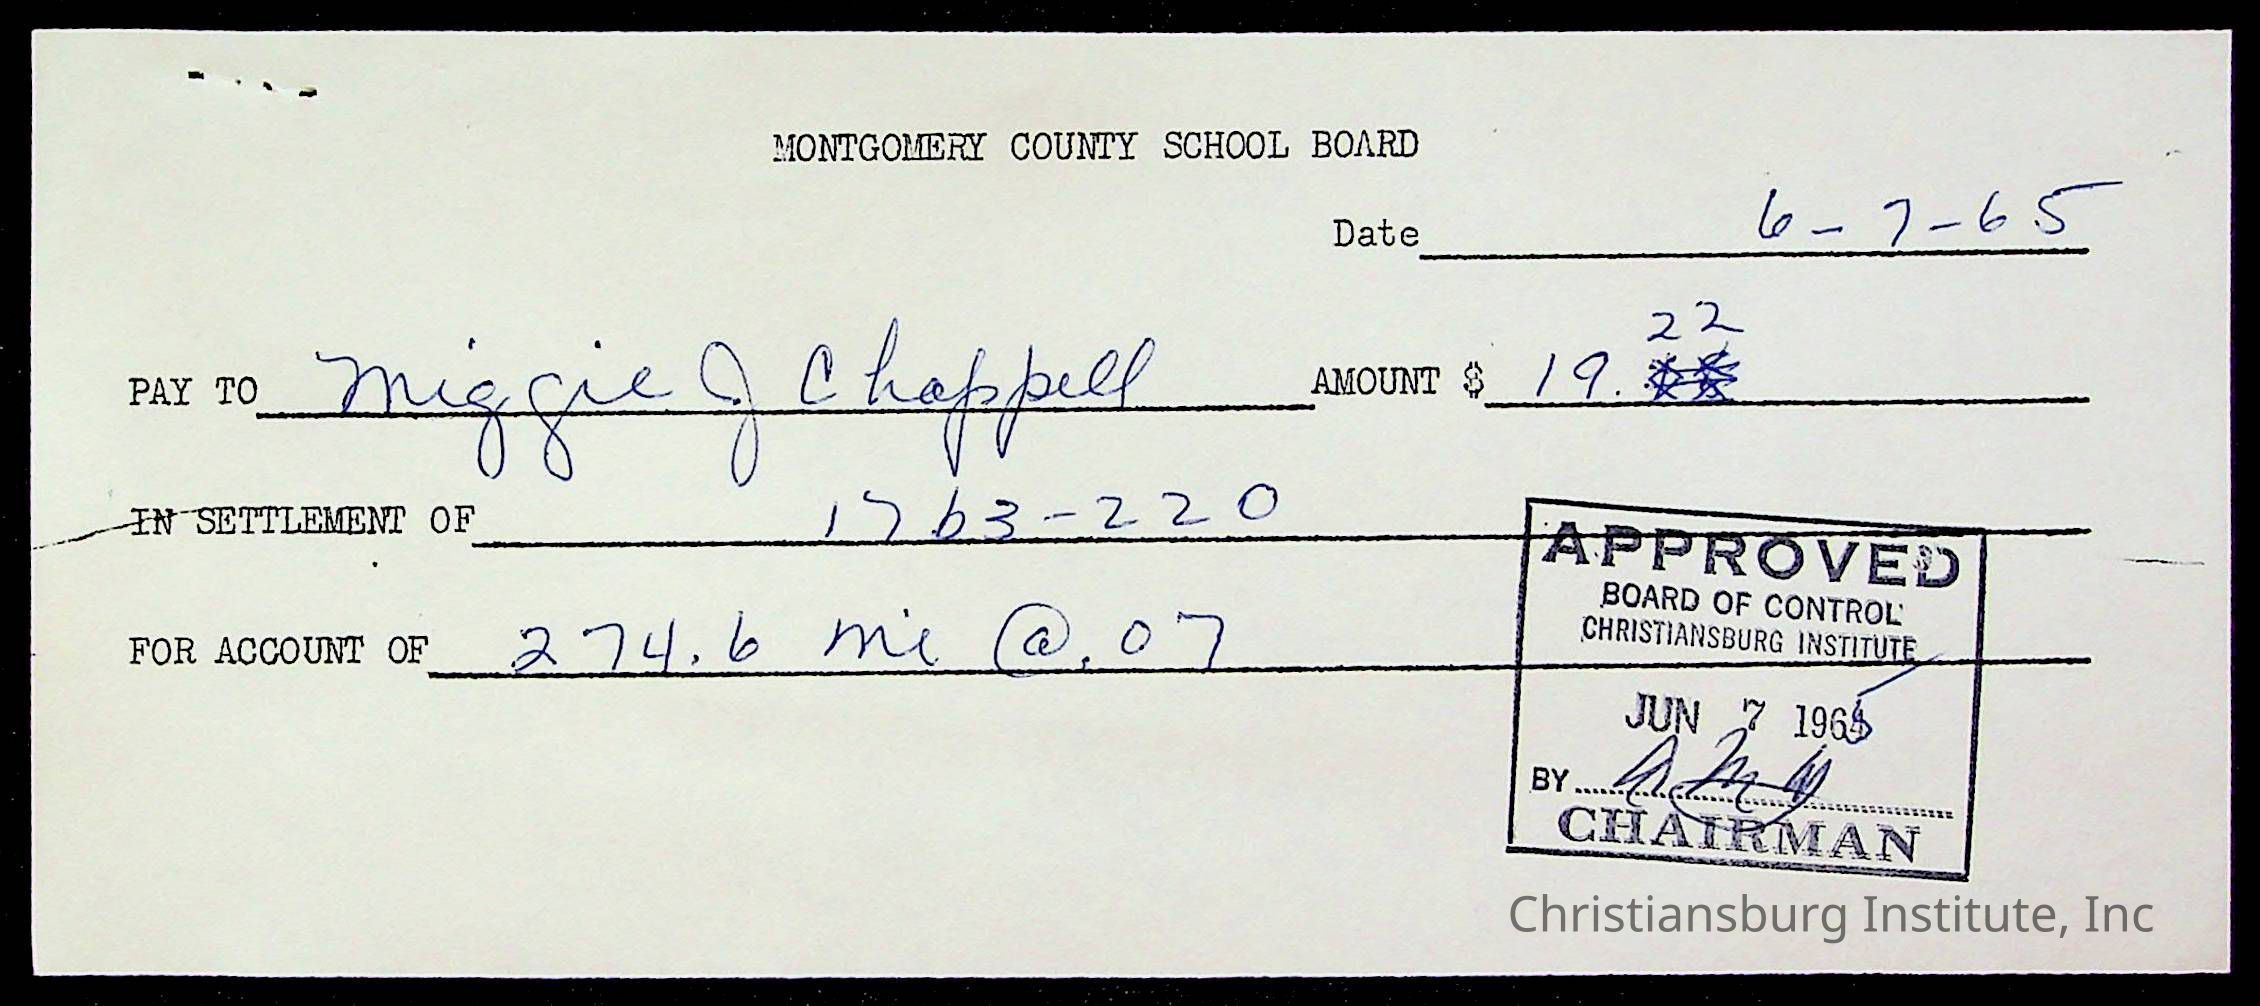 MONTGOMERY COUNTY SCHOOL BOARD
Date 6-7-65
PAY TO Miggie J Chappell AMOUNT $ 19. 22
IN SETTLEMENT OF 17b3-220
FOR ACCOUNT OF 274.6 mi @ .07
APPROVED
BOARD OF CONTROL
CHRISTIANSBURG INSTITUTE
JUN 7 1965
BY
CHAIRMAN
Christiansburg Institute, Inc